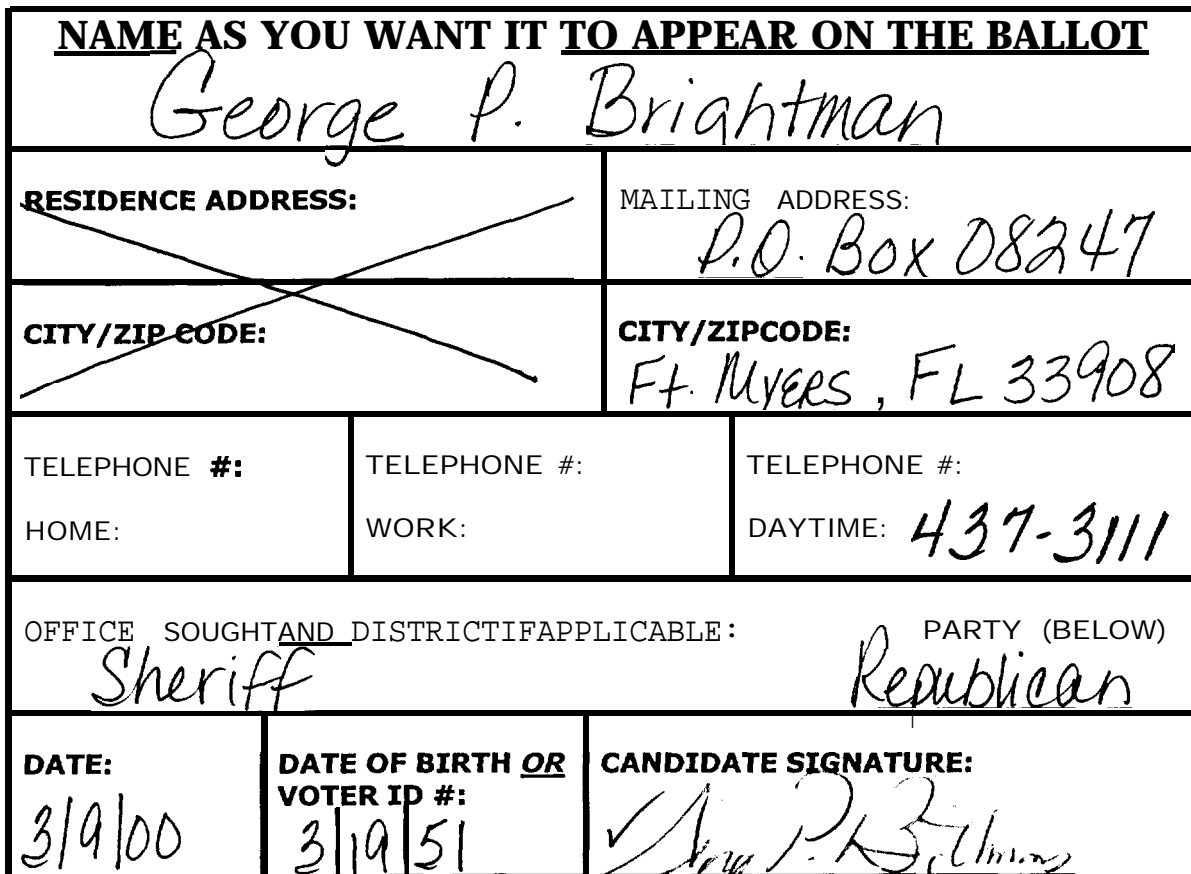 NAME AS YOU WANT IT TO APPEAR ON THE BALLOT
George P. Brightman
RESIDENCE ADDRESS:
MAILING ADDRESS:
P.O. Box 08247
CITY/ZIP CODE:
CITY/ZIPCODE:
Ft. Myers, FL 33908
TELEPHONE #:
HOME:
TELEPHONE #:
WORK:
TELEPHONE #:
DAYTIME: 437-3111
OFFICE SOUGHTAND DISTRICTIFAPPLICABLE: PARTY (BELOW)
Sheriff Republican
DATE:
3/9/00
DATE OF BIRTH OR
VOTER ID #:
3/19/51
CANDIDATE SIGNATURE: